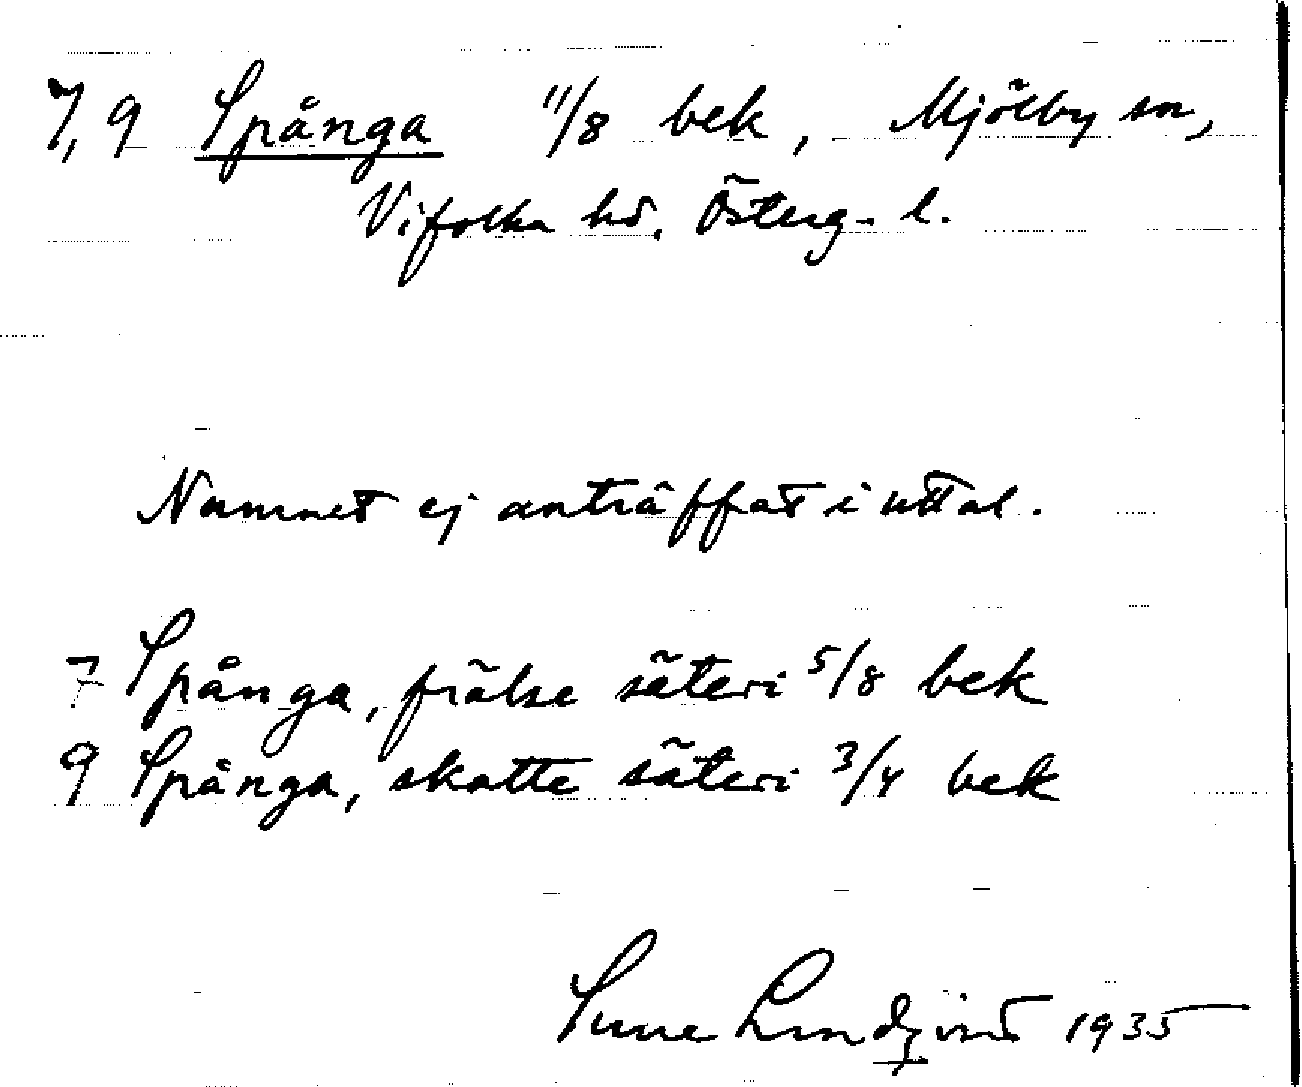 7, 9 Spånga 11/8 bek, Mjölby sn,
Vifolka hd. Österg. l.
Namnet ej anträffat i uttal.
7 Spånga, frälse säteri 5/8 bek
9 Spånga, skatte säteri 3/4 bek
Sune Lindqvist 1935